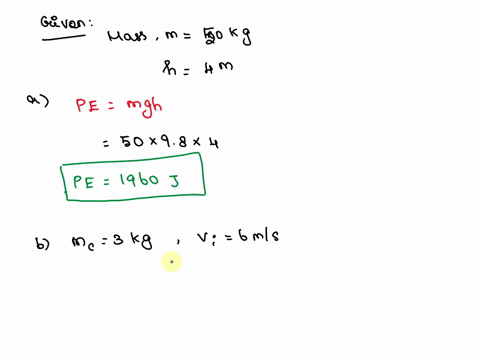 Given:
Mass, m = 50 kg
h = 4 m
a)
PE = mgh
= 50 × 9.8 × 4
PE = 1960 J
b) m_c = 3 kg , v_i = 6 m/s